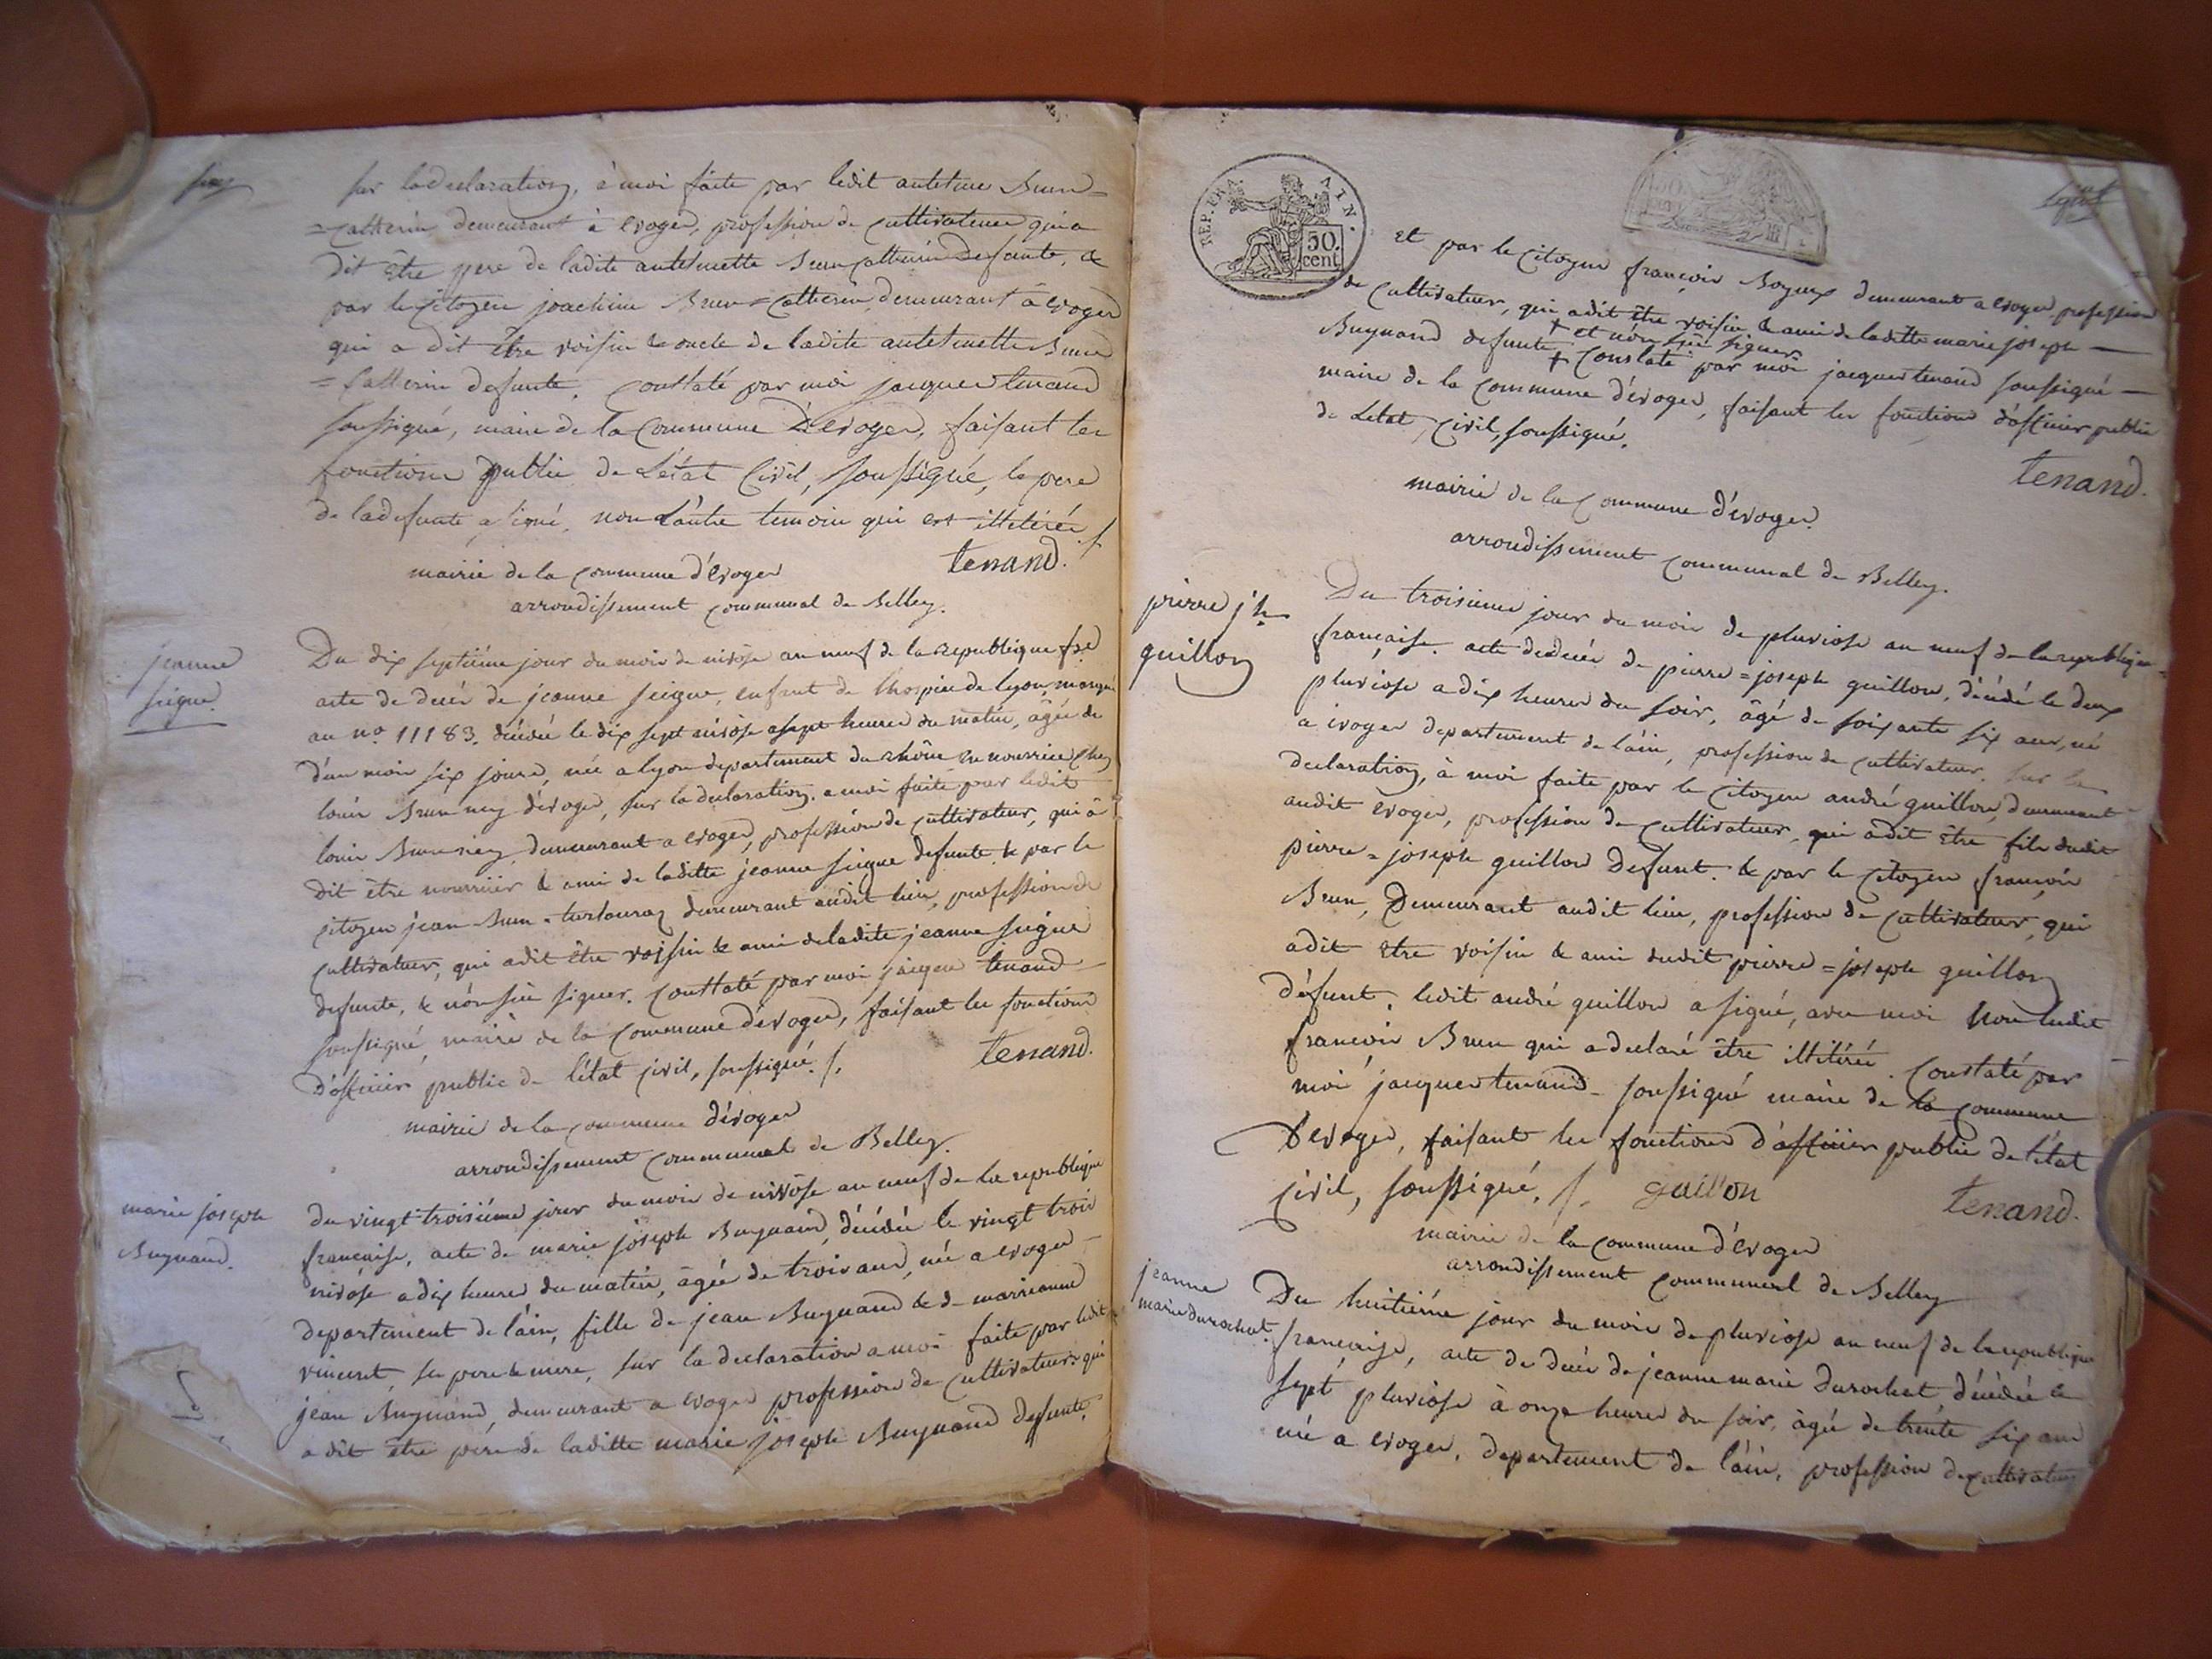 sur la declaration, à moi faite par ledit antelme Brun=
=catherin demeurant à evoges, profession de cultivateur qui a
dit être pere de ladite antelmette Brun catherin defunte, &
par le citoyen joachim Brun=catherin, demeurant à evoges
qui a dit être voisin & oncle de ladite antelmette Brun
=Catherin defunte, constaté par moi jacques tenand
soussigné, maire de la Commune D'evoges, faisant les
fonctions public de L'état Civil, soussigné, le pere
de la defunte a signé, non L'autre temoin qui est illétéré ./.
tenand.
mairie de la commune d'évoges
arrondissement communal de Belley.
jeanne
signe.
Du dix septiéme jour du mois de nivôse an neuf de la republique fse
acte de decés de jeanne signe, enfant de lhospice de lyon, marqué
au no. 11183. décédé le dix sept nivôse a sept heures du matin, âgée de
d'un mois six jours, née a lyon departement du rhône en nourrice chez
louis Brun ney d'évoges, sur la declaration, a moi faite par ledit
louis Brun ney, demeurant a evoges, profession de cultivateur, qui à
dit être nourricier & ami de laditte jeanne signe defunte & par le
citoyen jean Brun = turlouraz demeurant audit lieu, profession de
Cultivateur, qui a dit être voissin & ami de ladite jeanne signe
defunte, & n'on sçû signer. Constaté par moi jacques tenand
soussigné, maire de la commune d'évoges, faisant les fonctions
d'officier public de l'état civil, soussigné. /.
tenand.
mairie de la commune d'évoges
arrondissement communal de Belley.
marie joseph
Buynand.
du vingt troisiéme jour du mois de nivôse an neuf de la republique
francaise, acte de marie joseph Buynand, décédée le vingt trois
nivôse a dix heures du matin, âgée de trois ans, née a evoges
departement de l'ain, fille de jean Buynand & de marrianne
vincent, ses pere & mere, sur la declaration a moi faite par ledit
jean Buynand, demeurant a evoges profession de cultivateur qui
a dit être pére de laditte marie joseph Buynand defunte,
REP. FRA. 50. cent. AIN.
sept
et par le citoyen françois Boyeux demeurant a evoges, profession
de cultivateur, qui a dit être voisin & ami de laditte marie joseph —
+ et n'on sçû signer
Buynand defunte + Constaté par moi jacques tenand soussigné —
maire de la commune d'évoges, faisant les fonctions d'officier public
de L'etat, civil, soussigné.
tenand.
mairie de la commune d'évoges.
arrondissement communal de Belley.
pierre jh
guillon
Du troisieme jour du mois de pluviose an neuf de la republique=
française. acte de decés de pierre=joseph guillon, décédé le deux
pluviose a dix heures du soir, âgé de soixante six ans, né
a evoges departement de l'ain, profession de cultivateur. sur la
declaration, à moi faite par le citoyen andré guillon, demeurant
audit evoges, profession de cultivateur, qui a dit être fils dudit
pierre=joseph guillon Defunt. & par le citoyen françois
Brun, Demeurant audit lieu, profession de cultivateur, qui
a dit etre voisin & ami dudit pierre=joseph guillon
défunt, ledit andré guillon a signé, avec moi Non ledit
françois Brun qui a declaré être illitéré. Constaté par
moi jacques tenand soussigné maire de la commune
D'evoges, faisant les fonctions d'officier public de l'état
civil, soussigné, /. guillon
tenand.
mairie de la commune d'évoges
arrondissement communal de Belley
jeanne
marie durochat.
Du huitiéme jour du mois de pluviose an neuf de la republique
française, acte de decés de jeanne marie Durochat décédée le
sept pluviose à onze heures du soir, âgée de trente six ans
née a evoges, departement de l'ain, profession de cultivateur